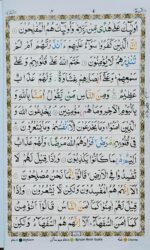 اُولٰٓئِكَ عَلٰى هُدًى مِّنْ رَّبِّهِمْ وَاُولٰٓئِكَ هُمُ الْمُفْلِحُوْنَ
اِنَّ الَّذِيْنَ كَفَرُوْا سَوَآءٌ عَلَيْهِمْ ءَاَنْذَرْتَهُمْ اَمْ لَمْ
تُنْذِرْهُمْ لَا يُؤْمِنُوْنَ خَتَمَ اللّٰهُ عَلٰى قُلُوْبِهِمْ وَعَلٰى
سَمْعِهِمْ وَعَلٰٓى اَبْصَارِهِمْ غِشَاوَةٌ وَّلَهُمْ عَذَابٌ
عَظِيْمٌ وَمِنَ النَّاسِ مَنْ يَّقُوْلُ اٰمَنَّا بِاللّٰهِ وَ
بِالْيَوْمِ الْاٰخِرِ وَمَا هُمْ بِمُؤْمِنِيْنَ يُخٰدِعُوْنَ اللّٰهَ
وَالَّذِيْنَ اٰمَنُوْا وَمَا يَخْدَعُوْنَ اِلَّآ اَنْفُسَهُمْ وَمَا يَشْعُرُوْنَ
فِيْ قُلُوْبِهِمْ مَّرَضٌ فَزَادَهُمُ اللّٰهُ مَرَضًا وَلَهُمْ عَذَابٌ
اَلِيْمٌ بِمَا كَانُوْا يَكْذِبُوْنَ وَاِذَا قِيْلَ لَهُمْ لَا
تُفْسِدُوْا فِى الْاَرْضِ قَالُوْٓا اِنَّمَا نَحْنُ مُصْلِحُوْنَ
اَلَآ اِنَّهُمْ هُمُ الْمُفْسِدُوْنَ وَلٰكِنْ لَّا يَشْعُرُوْنَ
وَاِذَا قِيْلَ لَهُمْ اٰمِنُوْا كَمَآ اٰمَنَ النَّاسُ قَالُوْٓا اَنُؤْمِنُ
كَمَآ اٰمَنَ السُّفَهَآءُ اَلَآ اِنَّهُمْ هُمُ السُّفَهَآءُ وَلٰكِنْ لَّا